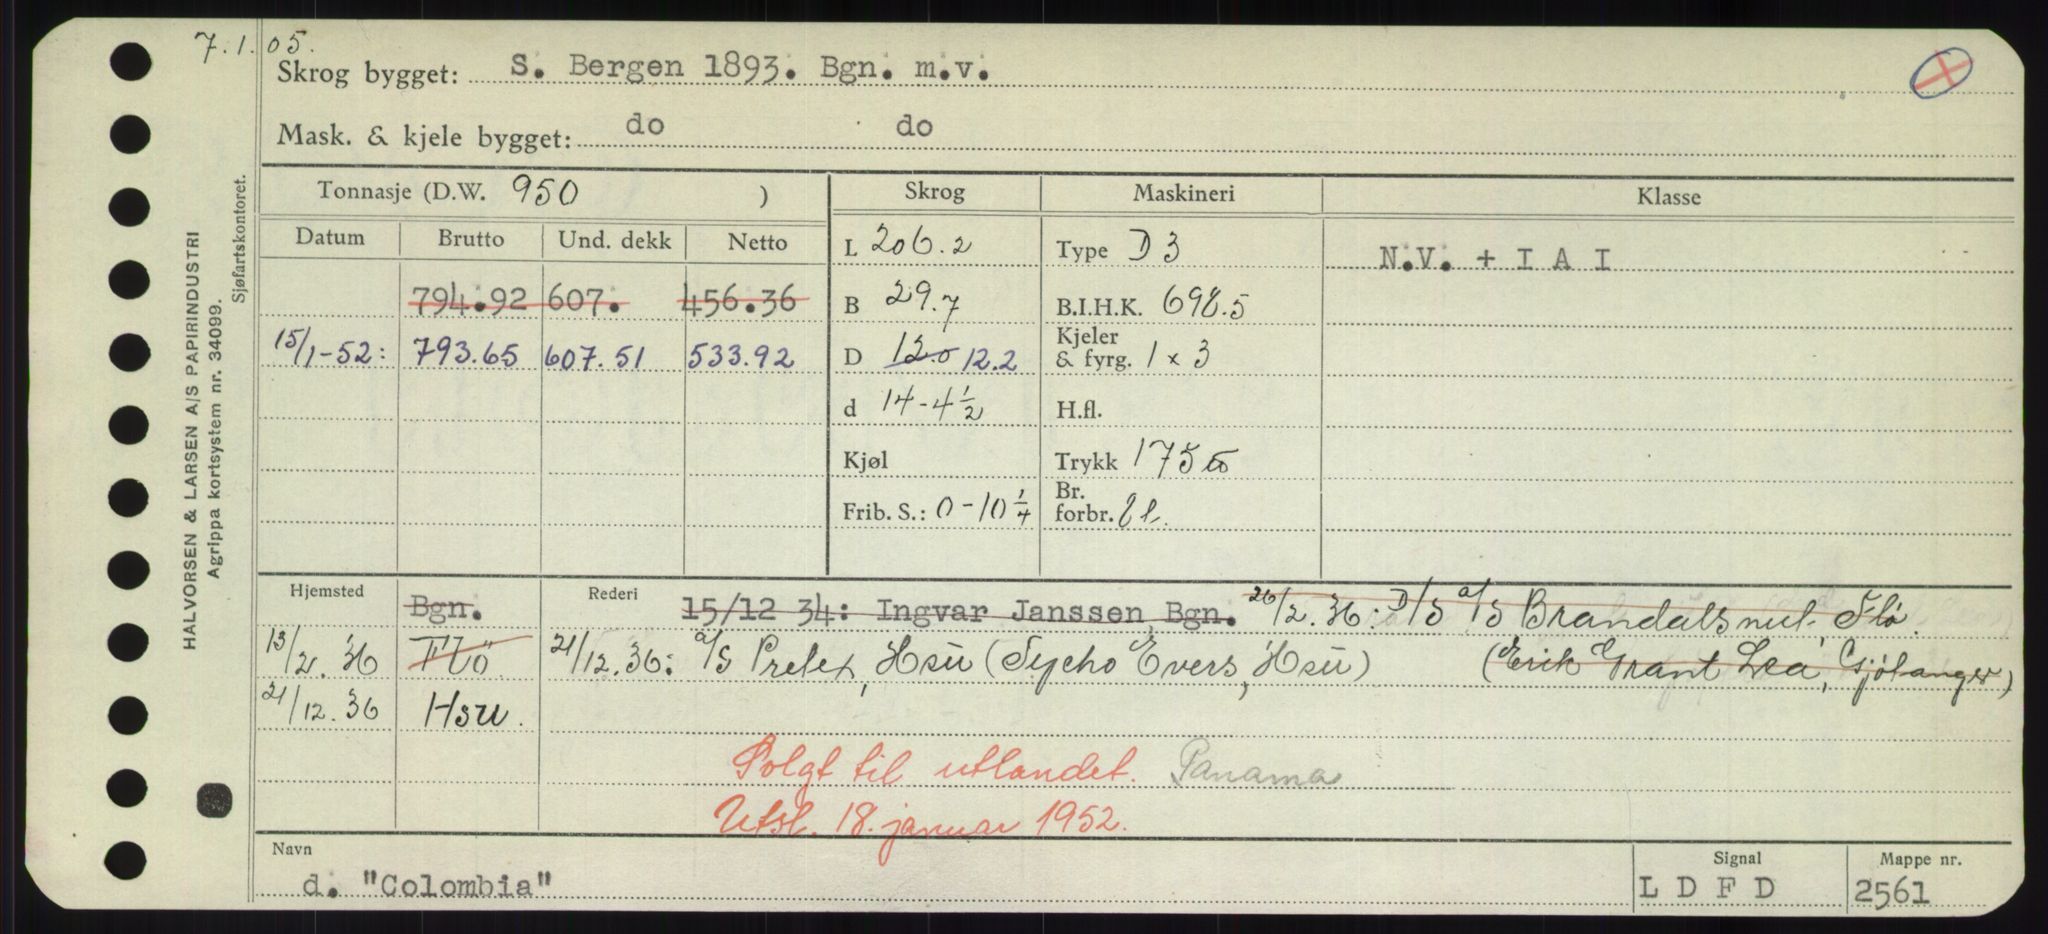 7.1.05.
Skrog bygget: S. Bergen 1893. Bgn. m.v.
Mask. & kjele bygget: do do
HALVORSEN & LARSEN A/S PAPIRINDUSTRI
Agrippa kortsystem nr. 34099.
Sjøfartskontoret.
Tonnasje (D.W. 950 ) Skrog Maskineri Klasse
Datum Brutto Und. dekk Netto L 206.2 Type D 3 N.V. + I A I
794.92 607. 456.36 B 29.7 B.I.H.K. 698.5
15/1-52: 793.65 607.51 533.92 D 12.0 12.2 Kjeler & fyrg. 1 x 3
d 14-4 1/2 H.fl.
Kjøl Trykk 175
Frib. S.: 0-10 1/4 Br. forbr.
Hjemsted Bgn. Rederi 15/12 34: Ingvar Janssen, Bgn. 26/2.36: D/S a/S Brandalsnut. Flø.
13/2.36 Flö 21/12.36: a/S Prelex, Hsu (Sycho Evers, Hsu) (Erik Grant Lea, Gjölanger)
21/12.36 Hsu.
Solgt til utlandet. Panama
Utsl. 18. januar 1952.
Navn Signal Mappe nr.
d. "Colombia" L D F D 2561